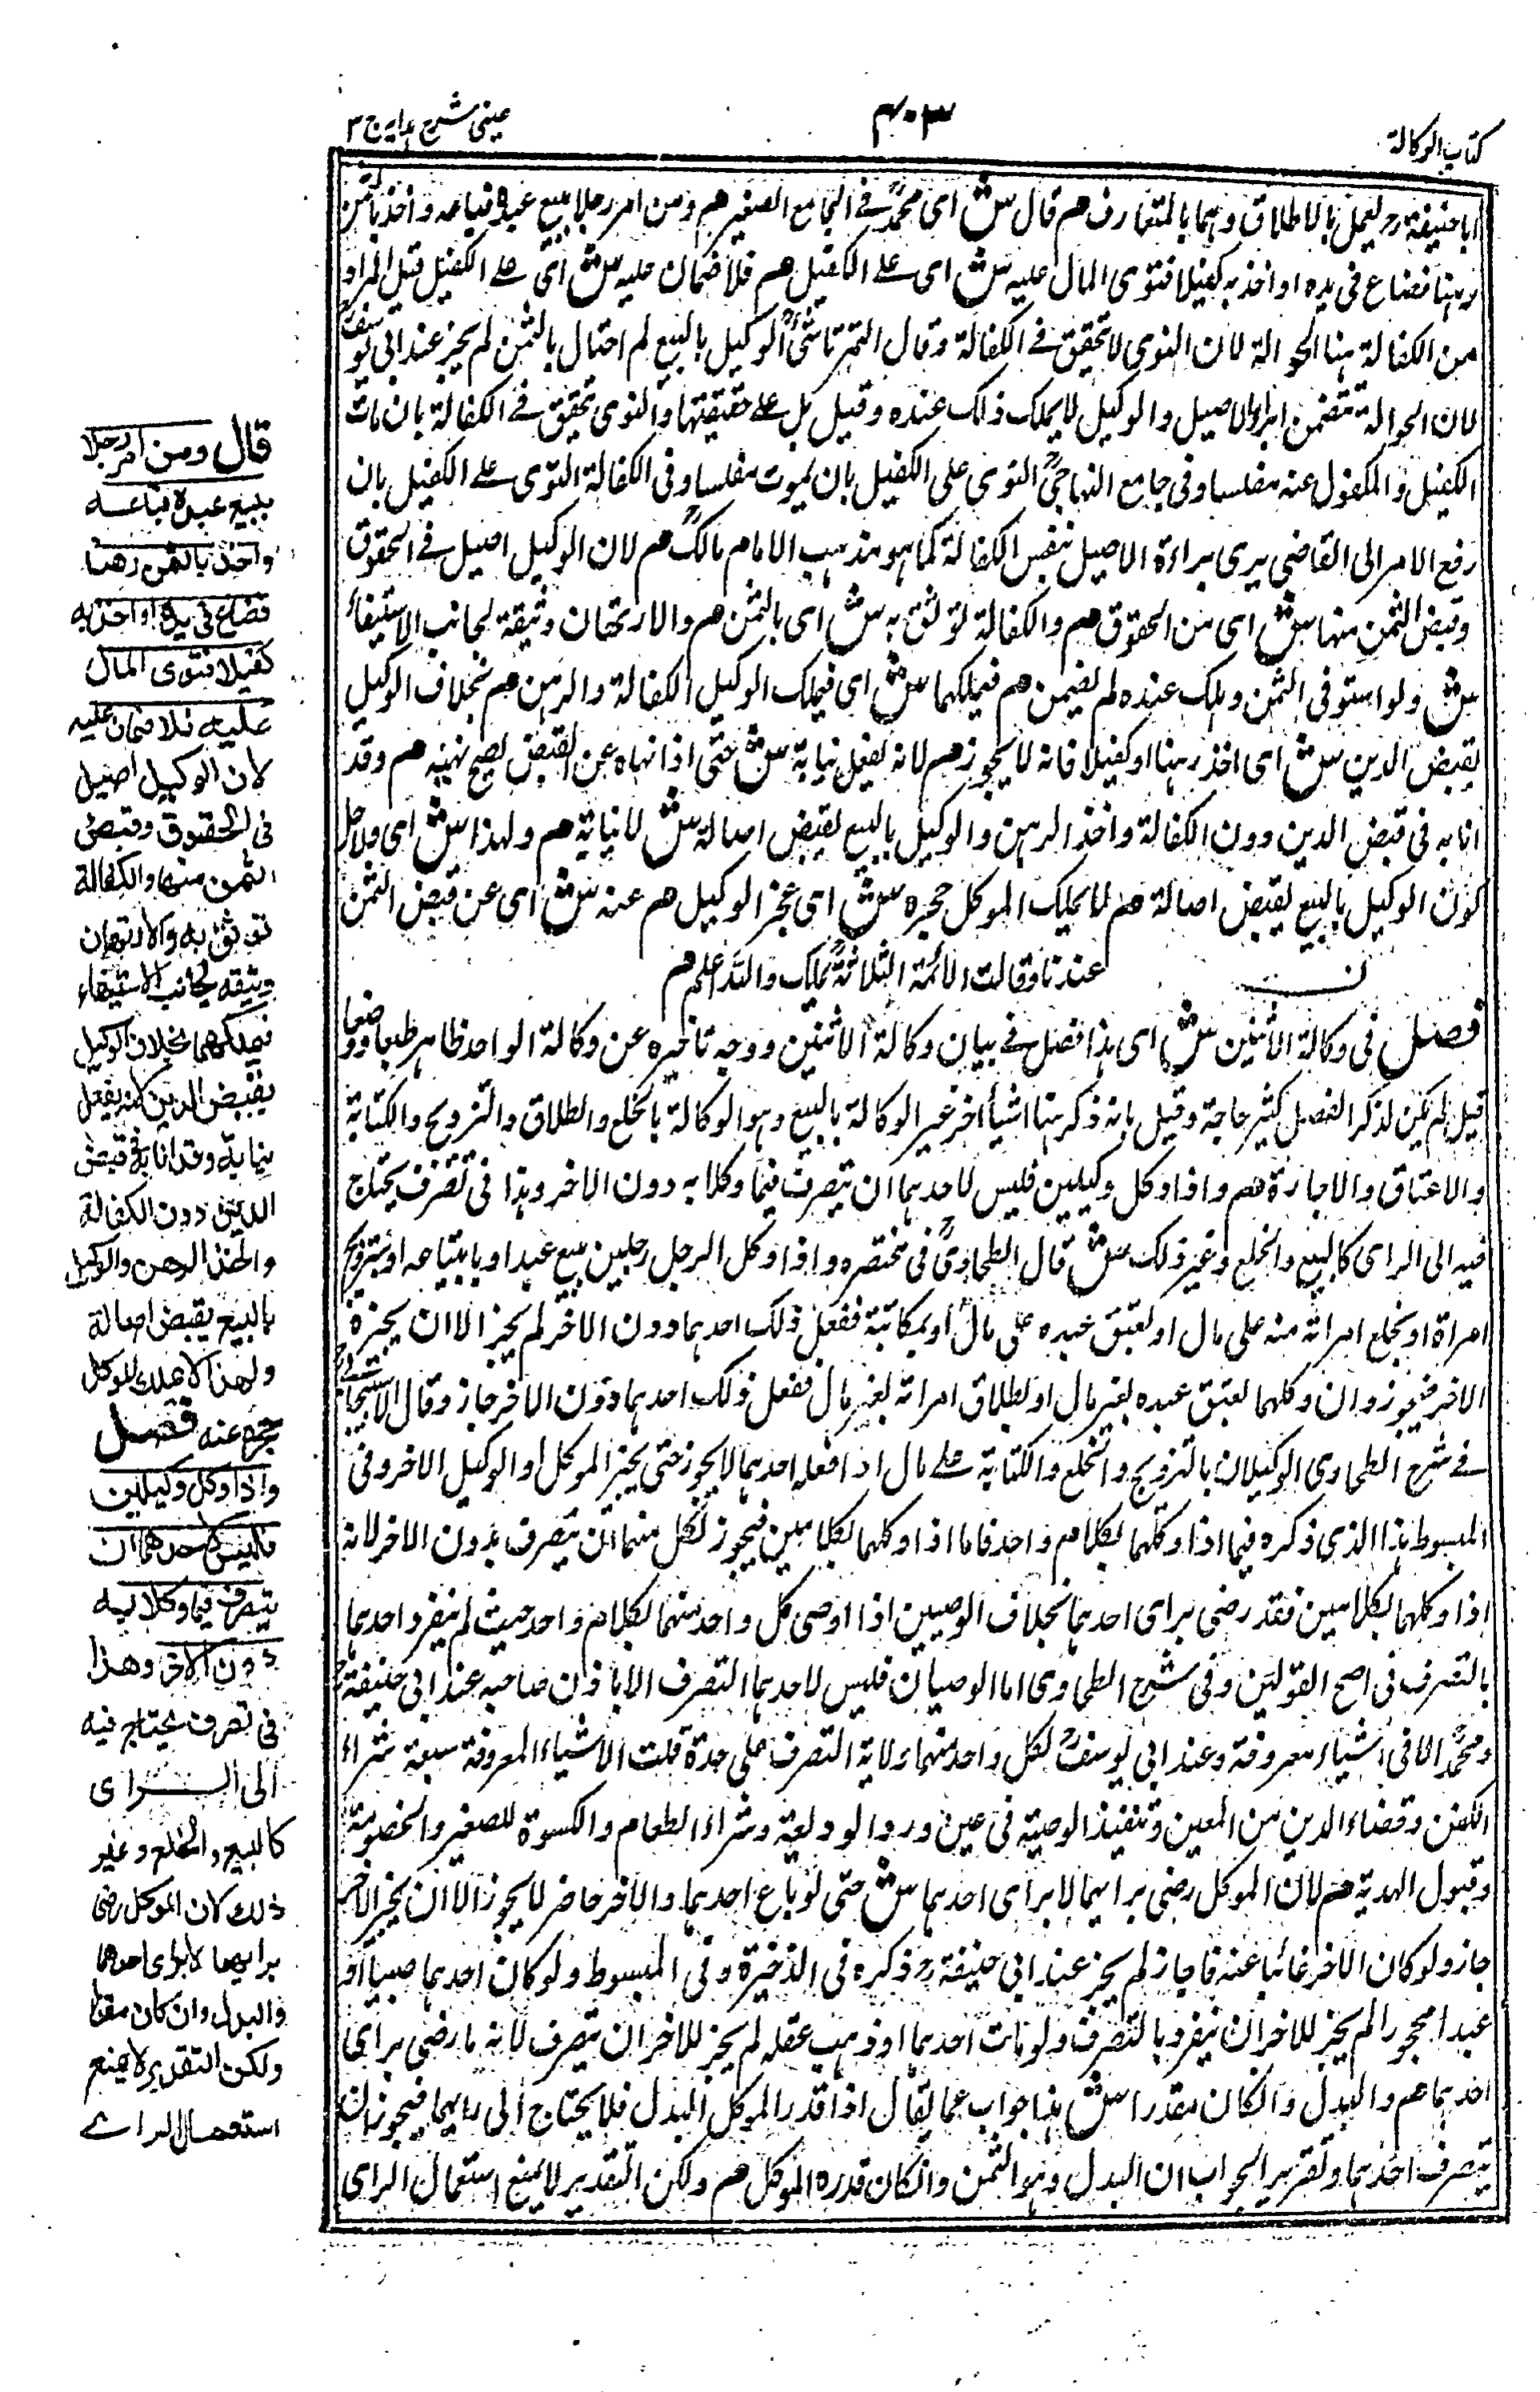 كتاب الوكالة
٤٠٣
عینی شرح ہدایہ ج ٣
ابا حنيفة رح يعمل بالاطلاق وہما بالمتعارف هم قال ش اى محمدؒ فے الجامع الصغير هم ومن امر رجلا ببيع عبده فباعه واخذ بالثمن
رہنا فضاع فى يده او اخذ به كفيلا فتوى المال عليه ش اى علے الكفيل هم فلا ضمان عليه ش اى علے الكفيل قيل المراد
من الكفالة ہنا الحوالة لان التوى لا تحقق فے الكفالة وقال التمرتاشىؒ الوكيل بالبيع لم احتال بالثمن لم يجز عند ابى يوسفؒ
لان الحوالة تتضمن ابراء الاصيل والوكيل لا يملك ذلك عنده وقيل بل علے حقيقتها والتوى تحقق فے الكفالة بان مات
الكفيل والمكفول عنه مفلسا وفى جامع التوى على الكفيل بان يموت مفلسا وفى الكفالة التوى علے الكفيل بان
رفع الامر الى القاضى يرى براءة الاصيل بنفس الكفالة كما ہو مذہب الامام مالكؒ هم لان الوكيل اصيل فے الحقوق
وقبض الثمن منها ش اى من الحقوق هم والكفالة توثق به ش اى بالثمن هم والارتهان وثيقة لجانب الاستيفاء
ش ولو استوفى الثمن وہلك عنده لم يضمن هم فيملكهما ش اى فيملك الوكيل الكفالة والرہن هم بخلاف الوكيل
بقبض الدين ش اى اخذ رہنا او كفيلا فانه لا يجوز هم لانه يفعل نيابة ش حتى اذا نہاه عن القبض يصح نہيه هم وقد
انابه فى قبض الدين دون الكفالة واخذ الرہن والوكيل بالبيع يقبض اصالة ش لا نيابة هم ولہذا ش اى ولاجل
كون الوكيل بالبيع يقبض اصالة هم لا يملك الموكل حجره ش اى عجز الوكيل هم عنه ش اى عن قبض الثمن
عندنا وقالت الائمة الثلاثةؒ يملك والله اعلم هم
فصل فى وكالة الاثنين ش اى ہذا فصل فے بيان وكالة الاثنين ووجه تاخيره عن وكالة الواحد ظاہر طبعا ووضعا
قيل لم يكن لذكر الفصل كثير حاجة وقيل بانه ذكر ہنا اشيأ اخر غير الوكالة بالبيع وہو الوكالة بالخلع والطلاق والتزويج والكتابة
والاعتاق والاجازة هم واذا وكل وكيلين فليس لاحدہما ان يتصرف فيما وكلا به دون الاخر وہذا فى تصرف يحتاج
فيه الى الراى كالبيع والخلع وغير ذلك ش قال الطحاوىؒ فى مختصره واذا وكل الرجل رجلين ببيع عبد او بابتياعه او بتزويج
امراة او بخلع امراته منه على مال او بعتق عبده على مال او بمكاتبة ففعل ذلك احدہما دون الاخر لم يجز الا ان يجيزه
الاخر فيجوز وان وكلهما بعتق عبده بغير مال او بطلاق امراته بغير مال ففعل ذلك احدہما دون الاخر جاز وقال الاسبيجابى
فے شرح الطحاوى الوكيلان بالتزويج والخلع والكتابة علے مال اذا فعله احدہما لا يجوز حتى يجيز الموكل او الوكيل الاخر وفى
المبسوط ہذا الذى ذكره فيما اذا وكلهما بكلام واحد فاما اذا وكلهما بكلامين فيجوز لكل منهما ان يتصرف بدون الاخر لانه
اذا وكلهما بكلامين فقد رضى براى احدہما بخلاف الوصيين اذا اوصى كل واحد منهما بكلام واحد حيث لم ينفرد احدہما
بالتصرف فى اصح القولين وفى شرح الطحاوى اما الوصيان فليس لاحدہما التصرف الا باذن صاحبه عند ابى حنيفةؒ
ومحمدؒ الا فى اشياء معروفة وعند ابى يوسفؒ لكل واحد منهما ولاية التصرف على حدة قلت الاشياء المعروفة سبعة شراء
الكفن وقضاء الدين من المعين وتنفيذ الوصية فى عين ورد الوديعة وشراء الطعام والكسوة للصغير والخصومة
وقبول الهدية هم لان الموكل رضى برايهما لا براى احدہما ش حتى لو باع احدہما والاخر حاضر لا يجوز الا ان يجيز الاخر
جاز ولو كان الاخر غائبا عنه فاجاز لم يجز عند ابى حنيفة رح ذكره فى الذخيرة وفى المبسوط ولو كان احدہما صبيا او
عبدا محجورا لم يجز للاخر ان ينفرد بالتصرف ولو مات احدہما او ذہب عقله لم يجز للاخر ان يتصرف لانه ما رضى براى
احدہما هم والبدل وانكان مقدرا ش ہذا جواب عما يقال اذا قدر الموكل البدل فلا يحتاج الى رايهما فيجوز ان
يتصرف احدہما وتقرير الجواب ان البدل وہو الثمن وانكان قدره الموكل هم ولكن التقدير لا يمنع استعمال الراى
قال ومن امر رجلا
ببيع عبده فباعه
واخذ بالثمن رهنا
فضاع فى يده او اخذ به
كفيلا فتوى المال
عليه فلا ضمان عليه
لان الوكيل اصيل
فى الحقوق وقبض
الثمن منها والكفالة
توثق به والارتهان
وثيقه لجانب الاستيفاء
فيملكهما بخلاف الوكيل
بقبض الدين لانه يفعل
نيابة وقد انابه فى قبض
الدين دون الكفالة
واخذ الرهن والوكيل
بالبيع يقبض اصالة
ولهذا لا يملك الموكل
حجره عنه فصل
واذا وكل وكيلين
فليس لاحدهما ان
يتصرف فيما وكلا به
دون الاخر وهذا
فى تصرف يحتاج فيه
الى الراى
كالبيع والخلع وغير
ذلك لان الموكل رضى
برايهما لا براى احدهما
والبدل وان كان مقدرا
ولكن التقدير لا يمنع
استعمال الراے